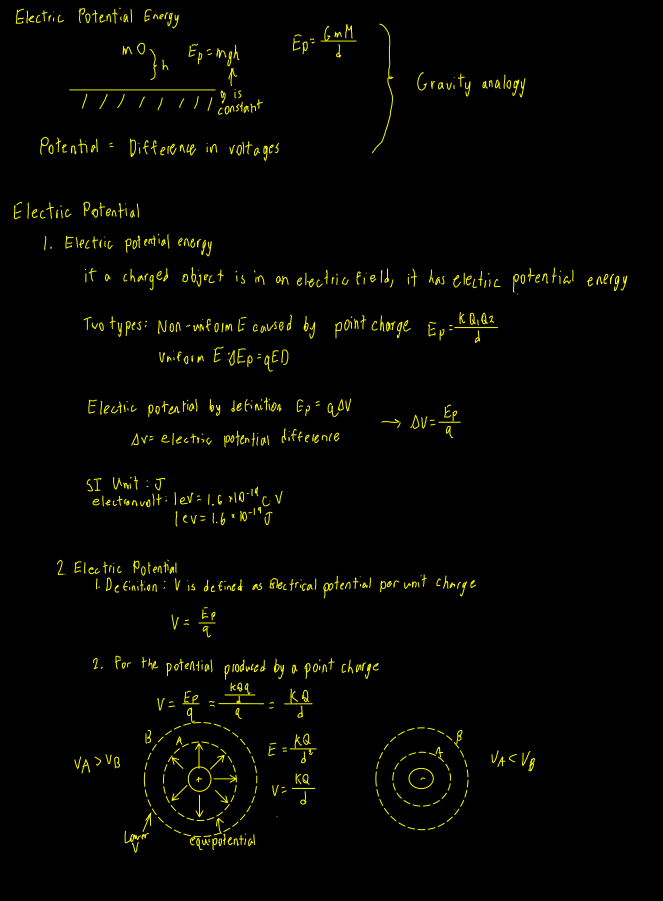 Electric Potential Energy
m O } h Ep = mgh
g is constant
Ep = GmM/d
Gravity analogy
Potential = Difference in voltages
Electric Potential
1. Electric potential energy
if a charged object is in an electric field, it has electric potential energy
Two types: Non-uniform E caused by point charge Ep = KQ1Q2/d
Uniform E: ΔEp = qED
Electric potential by definition Ep = qΔV → ΔV = Ep/q
ΔV = electric potential difference
SI Unit: J
electronvolt: 1eV = 1.6 × 10^-19 C V
1ev = 1.6 × 10^-19 J
2. Electric Potential
1. Definition: V is defined as Electrical potential per unit charge
V = Ep/q
2. For the potential produced by a point charge
V = Ep/q = (KQq/d)/q = KQ/d
B A
VA > VB
+
E = KQ/d²
V = KQ/d
Lower V
equipotential
B
A
-
VA < VB